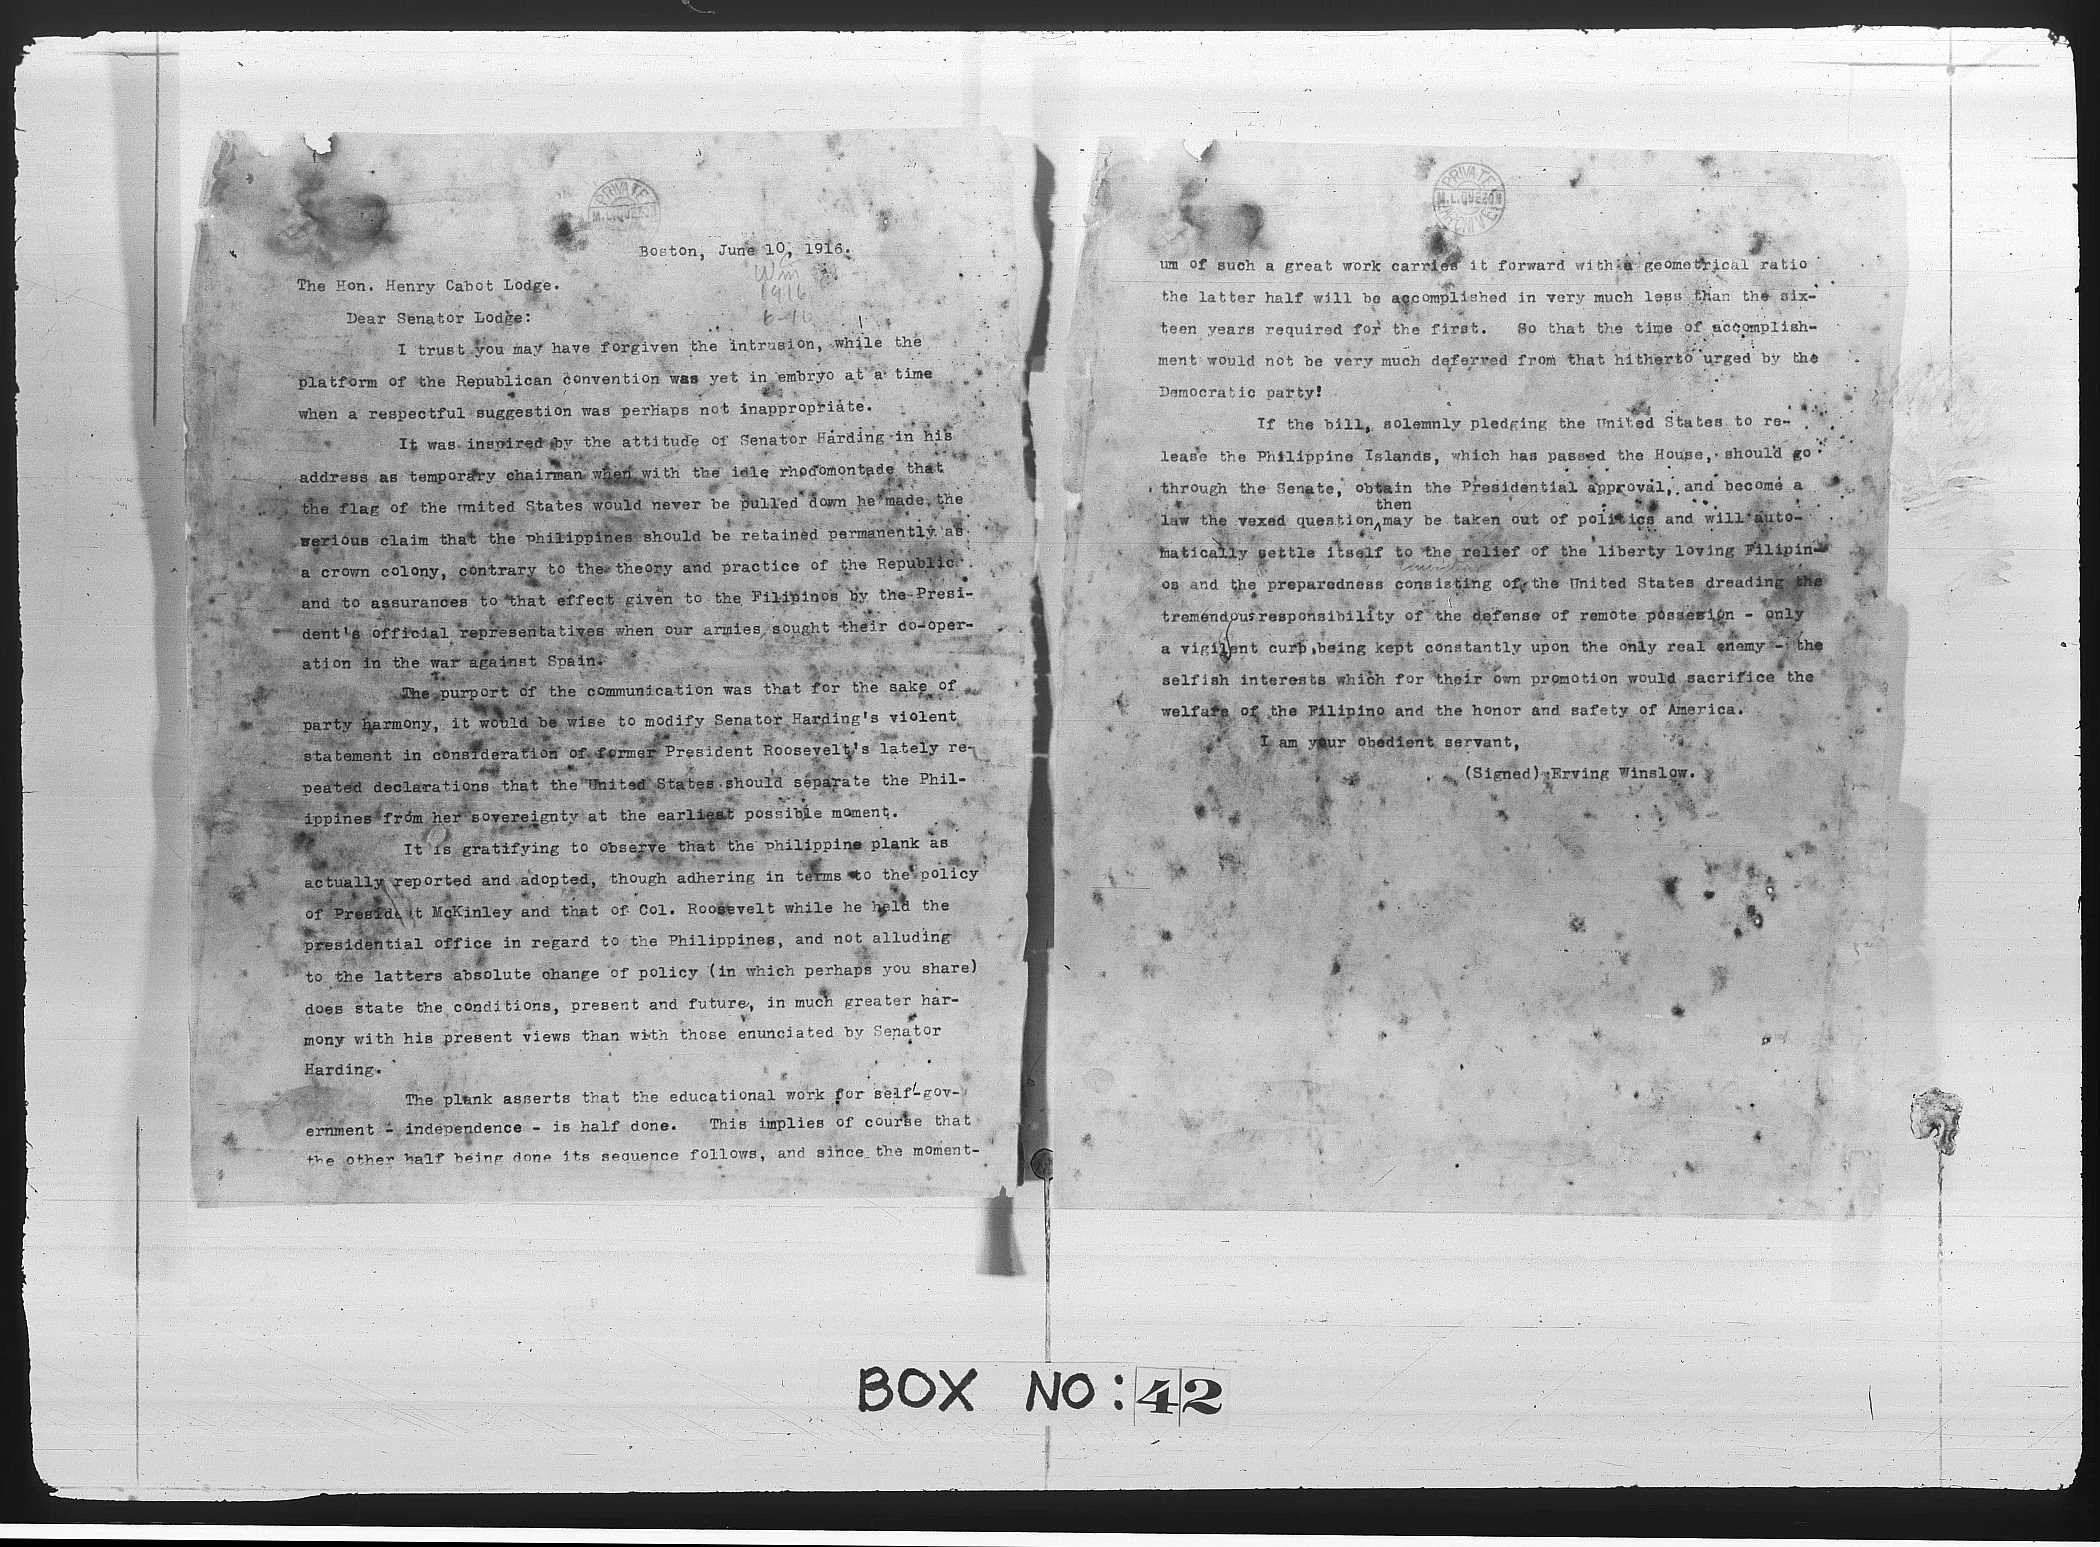 PRIVATE
M.L.QUEZON
Boston, June 10, 1916.
Wm
1916
6-10
The Hon. Henry Cabot Lodge.
Dear Senator Lodge:
I trust you may have forgiven the intrusion, while the
platform of the Republican convention was yet in embryo at a time
when a respectful suggestion was perhaps not inappropriate.
It was inspired by the attitude of Senator Harding in his
address as temporary chairman when with the idle rhodomontade that
the flag of the United States would never be pulled down he made the
werious claim that the Philippines should be retained permanently as
a crown colony, contrary to the theory and practice of the Republic
and to assurances to that effect given to the Filipinos by the Presi-
dent's official representatives when our armies sought their co-oper-
ation in the war against Spain.
The purport of the communication was that for the sake of
party harmony, it would be wise to modify Senator Harding's violent
statement in consideration of former President Roosevelt's lately re-
peated declarations that the United States should separate the Phil-
ippines from her sovereignty at the earliest possible moment.
It is gratifying to observe that the Philippine plank as
actually reported and adopted, though adhering in terms to the policy
of President McKinley and that of Col. Roosevelt while he held the
presidential office in regard to the Philippines, and not alluding
to the latters absolute change of policy (in which perhaps you share)
does state the conditions, present and future, in much greater har-
mony with his present views than with those enunciated by Senator
Harding.
The plank asserts that the educational work for self-gov-
ernment - independence - is half done. This implies of course that
the other half being done its sequence follows, and since the moment-
PRIVATE
M.L.QUEZON
ARCHIVE
um of such a great work carries it forward with a geometrical ratio
the latter half will be accomplished in very much less than the six-
teen years required for the first. So that the time of accomplish-
ment would not be very much deferred from that hitherto urged by the
Democratic party!
If the bill, solemnly pledging the United States to re-
lease the Philippine Islands, which has passed the House, should go
through the Senate, obtain the Presidential approval, and become a
then
law the vexed question may be taken out of politics and will auto-
matically settle itself to the relief of the liberty loving Filipin-
os and the preparedness consisting of the United States dreading the
tremendous responsibility of the defense of remote possesion - only
a vigilent curb, being kept constantly upon the only real enemy - the
selfish interests which for their own promotion would sacrifice the
welfare of the Filipino and the honor and safety of America.
I am your obedient servant,
(Signed) Erving Winslow.
BOX NO: 42